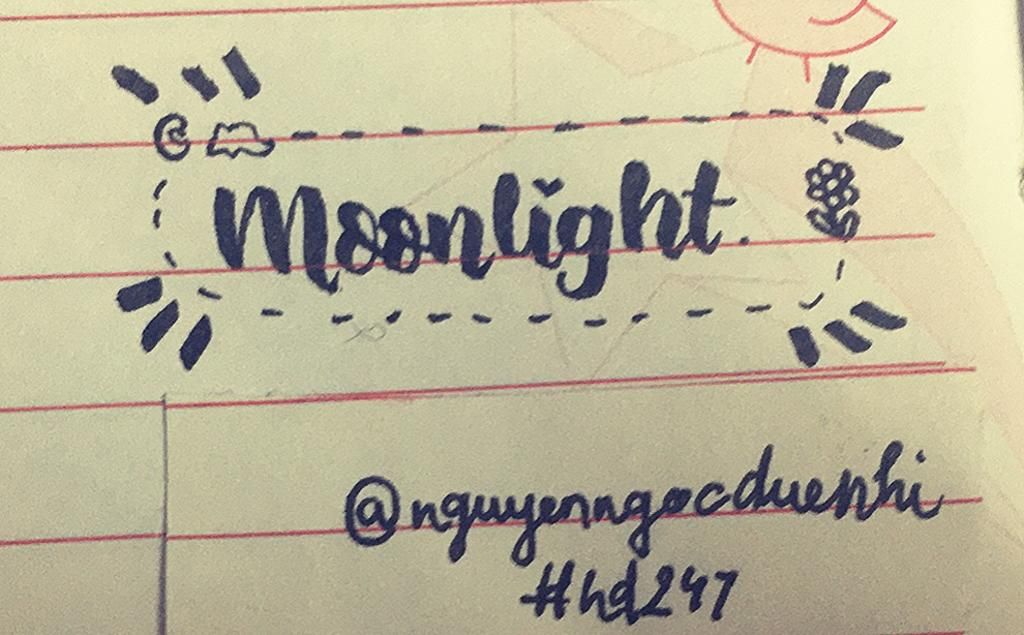 Moonlight.
@nguyenngocduenhi
#hd247